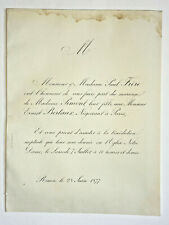 M
Monsieur & Madame Paul Frère
ont l'honneur de vous faire part du mariage
de Madame Simont leur fille, avec Monsieur
Ernest Bertaux, Négociant à Paris,
Et vous prient d'assister à la bénédiction
nuptiale qui leur sera donnée en l'Eglise Notre
Dame, le Samedi 7 Juillet à 10 heures et demie.
le 28 Juin 1877